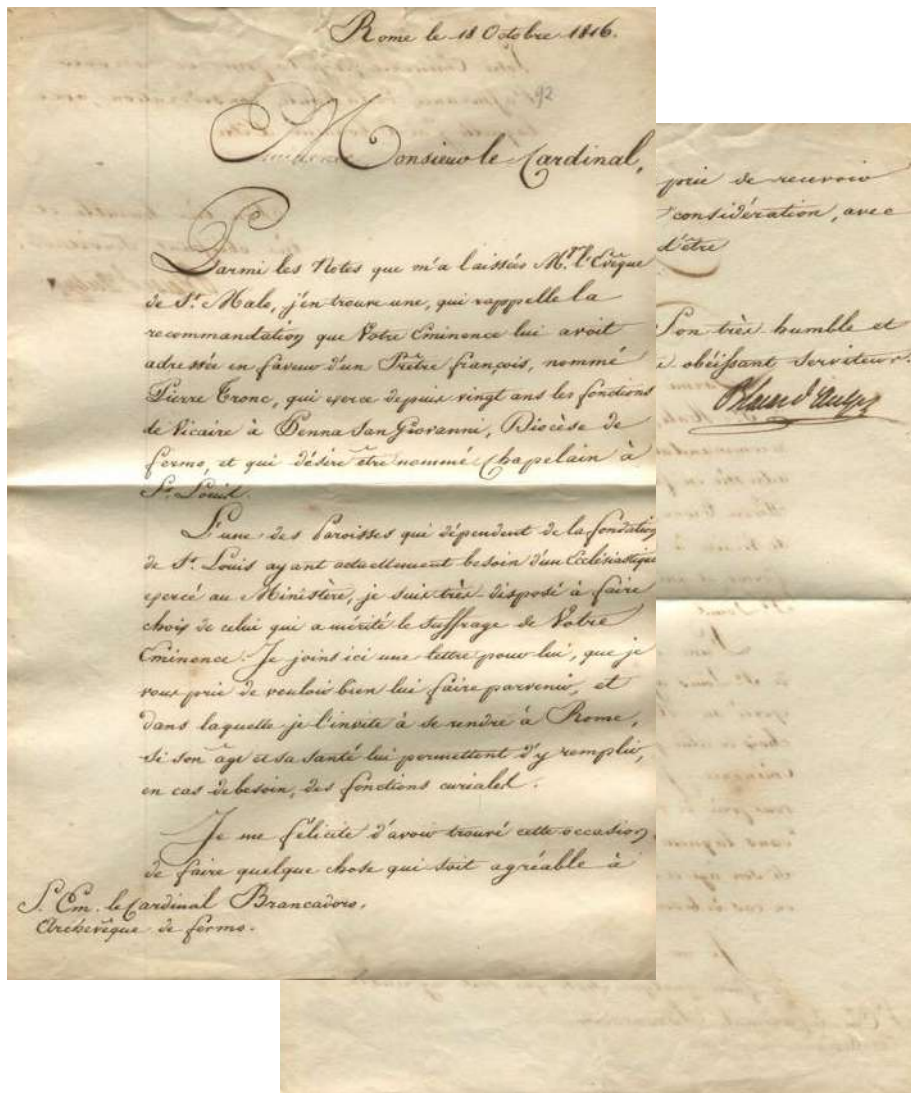 Rome le 18 Octobre 1816.
92
Monsieur le Cardinal,
Parmi les Notes que m'a laissées Mr. l'Evêque
de St. Malo, j'en trouve une, qui rappelle la
recommandation que Votre Eminence lui avoit
adressée en faveur d'un Prêtre françois, nommé
Pierre Tronc, qui exerce depuis vingt ans les fonctions
de Vicaire à Penna San Giovanni, Diocèse de
fermo, et qui désire être nommé Chapelain à
St. Louis.
L'une des Paroisses qui dépendent de la fondation
de St. Louis ayant actuellement besoin d'un Ecclésiastique
exercé au Ministère, je suis très-disposé à faire
choix de celui qui a mérité le suffrage de Votre
Eminence. Je joins ici une lettre pour lui, que je
vous prie de vouloir bien lui faire parvenir, et
dans laquelle je l'invite à se rendre à Rome,
si son âge et sa santé lui permettent d'y remplir,
en cas de besoin, des fonctions curiales.
Je me félicite d'avoir trouvé cette occasion
de faire quelque chose qui soit agréable à
S. Em. le Cardinal Brancadoro,
Archevêque de fermo.
prie de recevoir
considération, avec
d'être
Son très humble et
obéissant Serviteur.